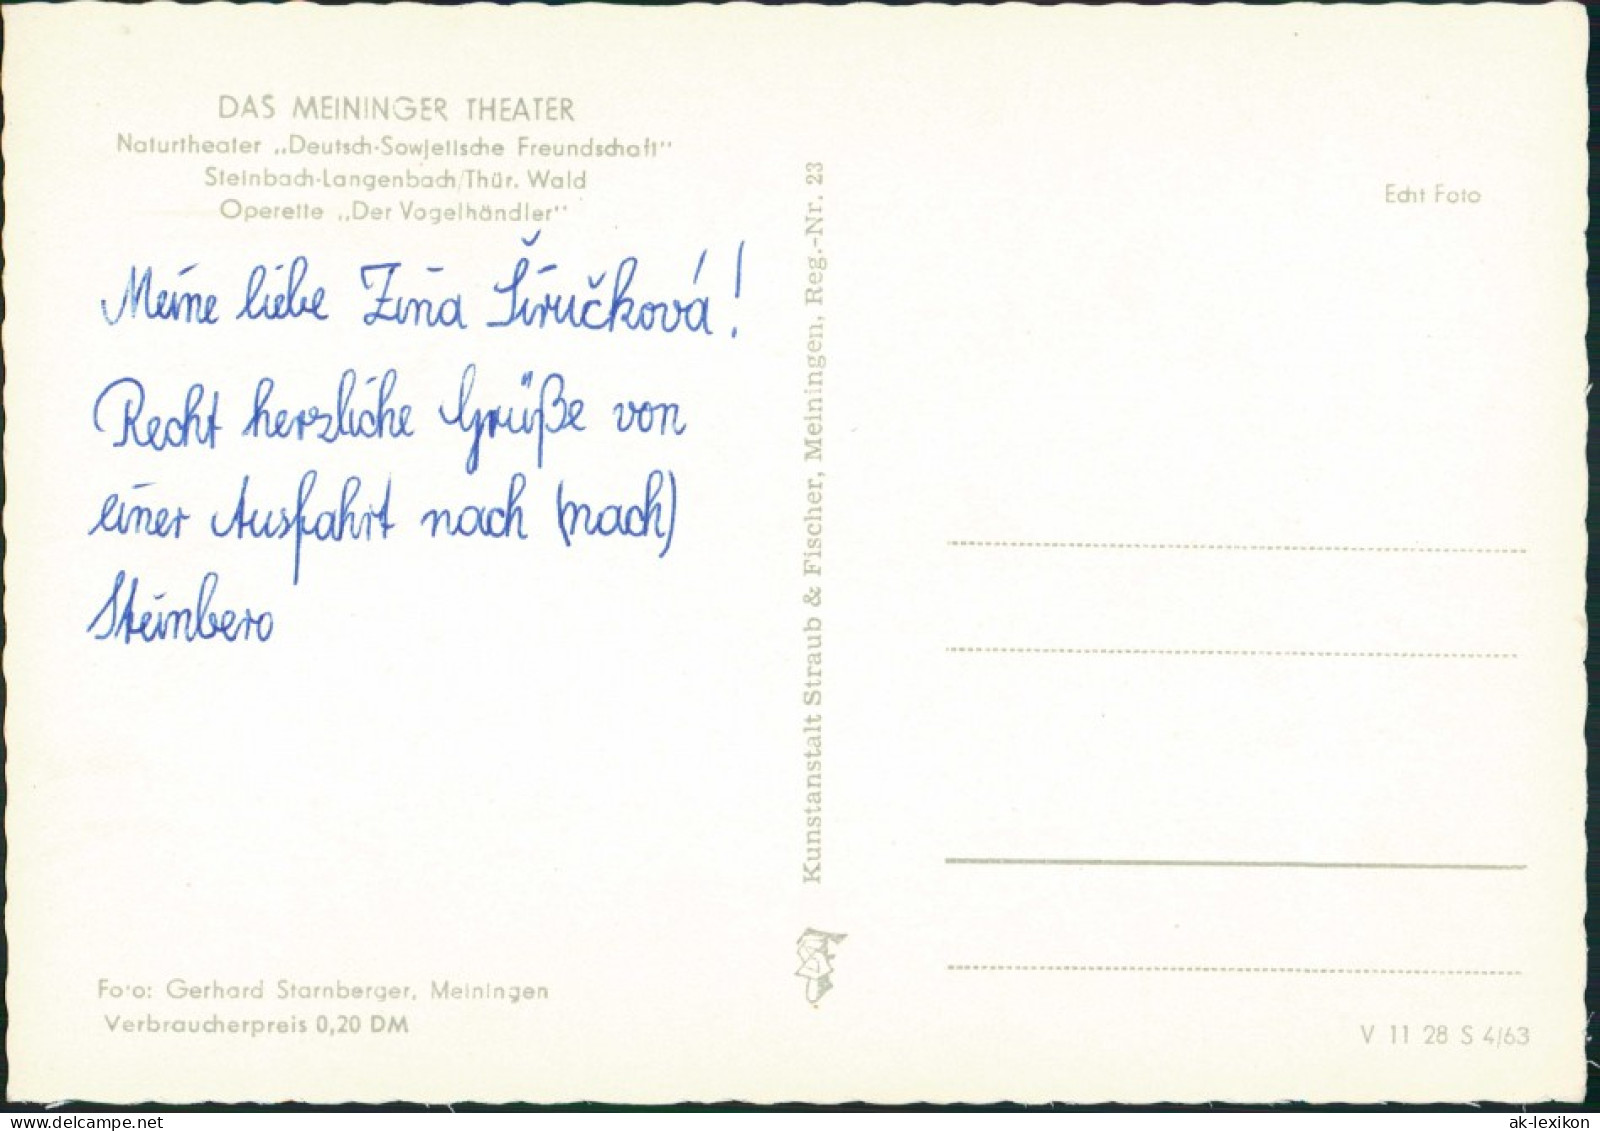 DAS MEININGER THEATER
Naturtheater „Deutsch-Sowjetische Freundschaft"
Steinbach-Langenbach/Thür. Wald
Operette „Der Vogelhändler"
Meine liebe Zina Širučková!
Recht herzliche Grüße von
einer Ausfahrt nach (nach)
Steinbero
Foto: Gerhard Starnberger, Meiningen
Verbraucherpreis 0,20 DM
Kunstanstalt Straub & Fischer, Meiningen, Reg.-Nr. 23
Echt Foto
V 11 28 S 4/63
www.delcampe.net
ak-lexikon